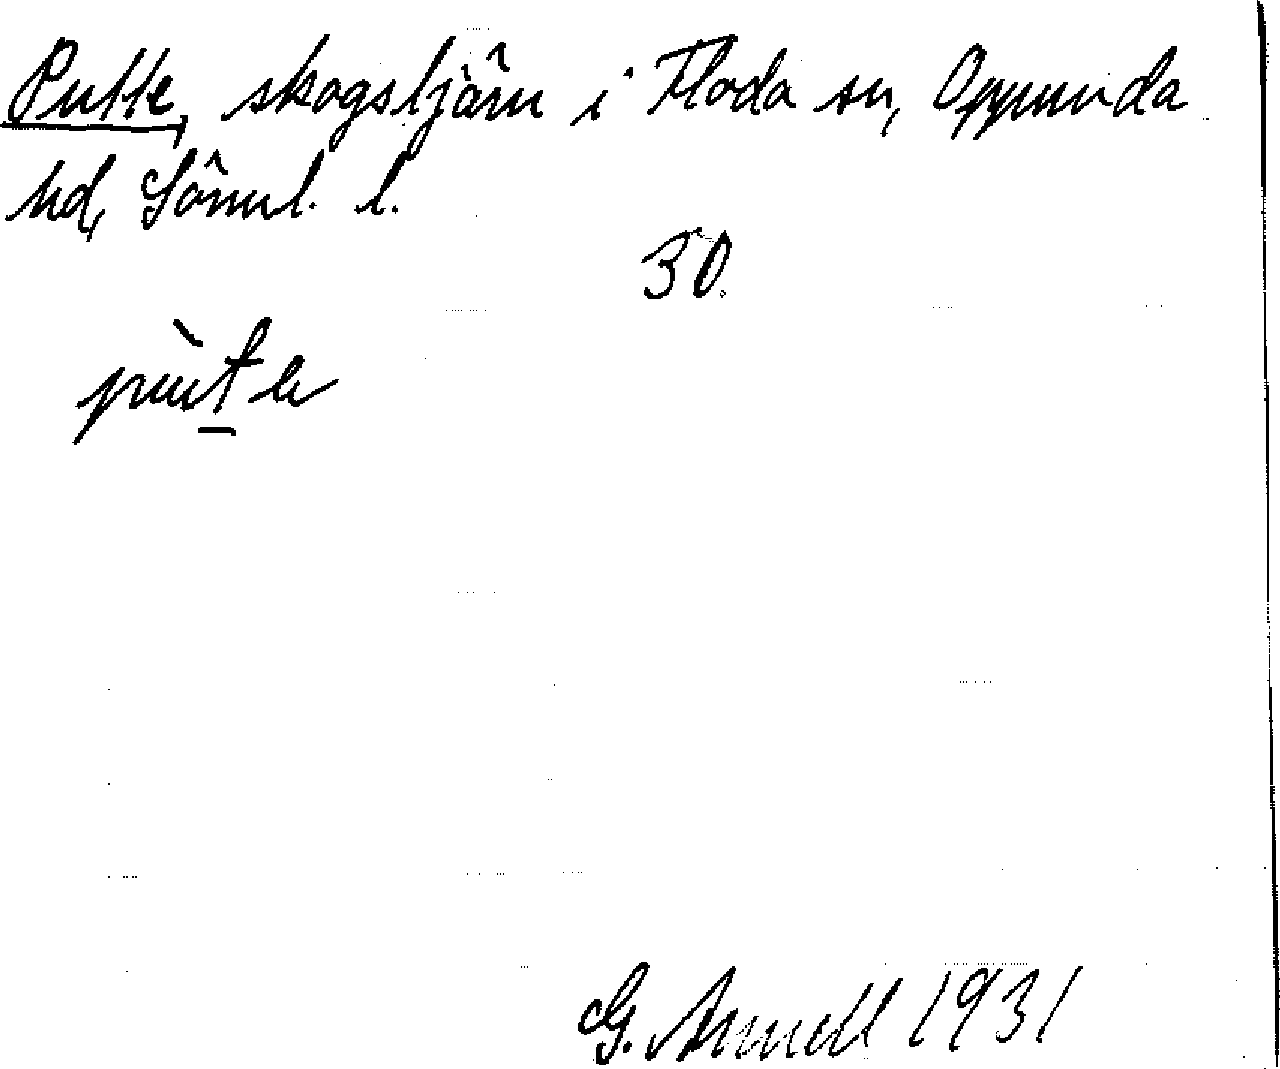 Putte, skogstjärn i Floda sn, Oppunda
hd, Sörml. l.
30.
pùt̲e
G. Annell 1931